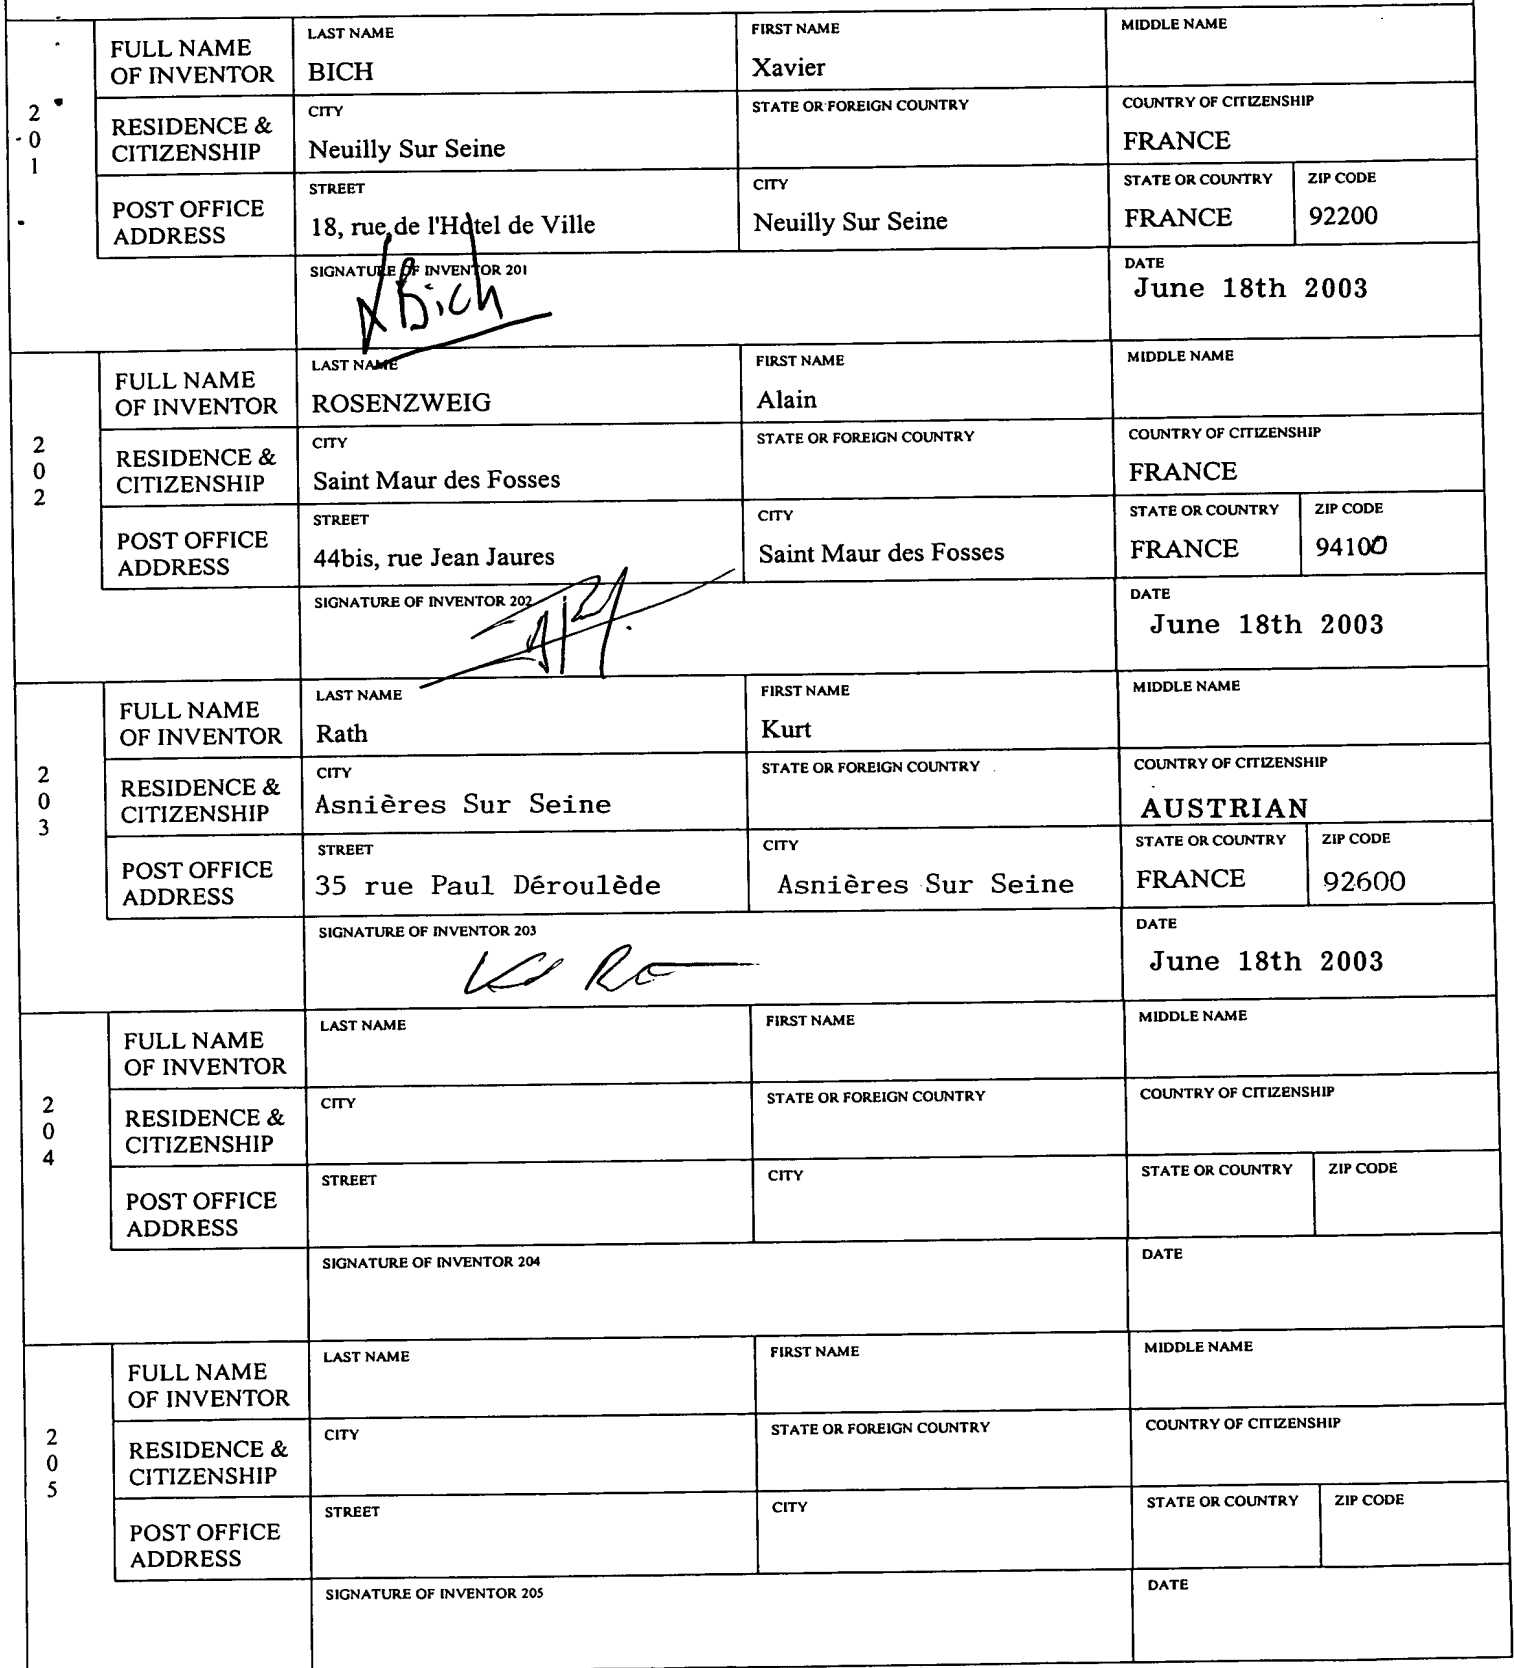 2
0
1
FULL NAME
OF INVENTOR
LAST NAME
BICH
FIRST NAME
Xavier
MIDDLE NAME
RESIDENCE &
CITIZENSHIP
CITY
Neuilly Sur Seine
STATE OR FOREIGN COUNTRY
COUNTRY OF CITIZENSHIP
FRANCE
POST OFFICE
ADDRESS
STREET
18, rue de l'Hotel de Ville
CITY
Neuilly Sur Seine
STATE OR COUNTRY
FRANCE
ZIP CODE
92200
SIGNATURE OF INVENTOR 201
XBich
DATE
June 18th 2003
2
0
2
FULL NAME
OF INVENTOR
LAST NAME
ROSENZWEIG
FIRST NAME
Alain
MIDDLE NAME
RESIDENCE &
CITIZENSHIP
CITY
Saint Maur des Fosses
STATE OR FOREIGN COUNTRY
COUNTRY OF CITIZENSHIP
FRANCE
POST OFFICE
ADDRESS
STREET
44bis, rue Jean Jaures
CITY
Saint Maur des Fosses
STATE OR COUNTRY
FRANCE
ZIP CODE
94100
SIGNATURE OF INVENTOR 202
DATE
June 18th 2003
2
0
3
FULL NAME
OF INVENTOR
LAST NAME
Rath
FIRST NAME
Kurt
MIDDLE NAME
RESIDENCE &
CITIZENSHIP
CITY
Asnières Sur Seine
STATE OR FOREIGN COUNTRY
COUNTRY OF CITIZENSHIP
AUSTRIAN
POST OFFICE
ADDRESS
STREET
35 rue Paul Déroulède
CITY
Asnières Sur Seine
STATE OR COUNTRY
FRANCE
ZIP CODE
92600
SIGNATURE OF INVENTOR 203
DATE
June 18th 2003
2
0
4
FULL NAME
OF INVENTOR
LAST NAME
FIRST NAME
MIDDLE NAME
RESIDENCE &
CITIZENSHIP
CITY
STATE OR FOREIGN COUNTRY
COUNTRY OF CITIZENSHIP
POST OFFICE
ADDRESS
STREET
CITY
STATE OR COUNTRY
ZIP CODE
SIGNATURE OF INVENTOR 204
DATE
2
0
5
FULL NAME
OF INVENTOR
LAST NAME
FIRST NAME
MIDDLE NAME
RESIDENCE &
CITIZENSHIP
CITY
STATE OR FOREIGN COUNTRY
COUNTRY OF CITIZENSHIP
POST OFFICE
ADDRESS
STREET
CITY
STATE OR COUNTRY
ZIP CODE
SIGNATURE OF INVENTOR 205
DATE